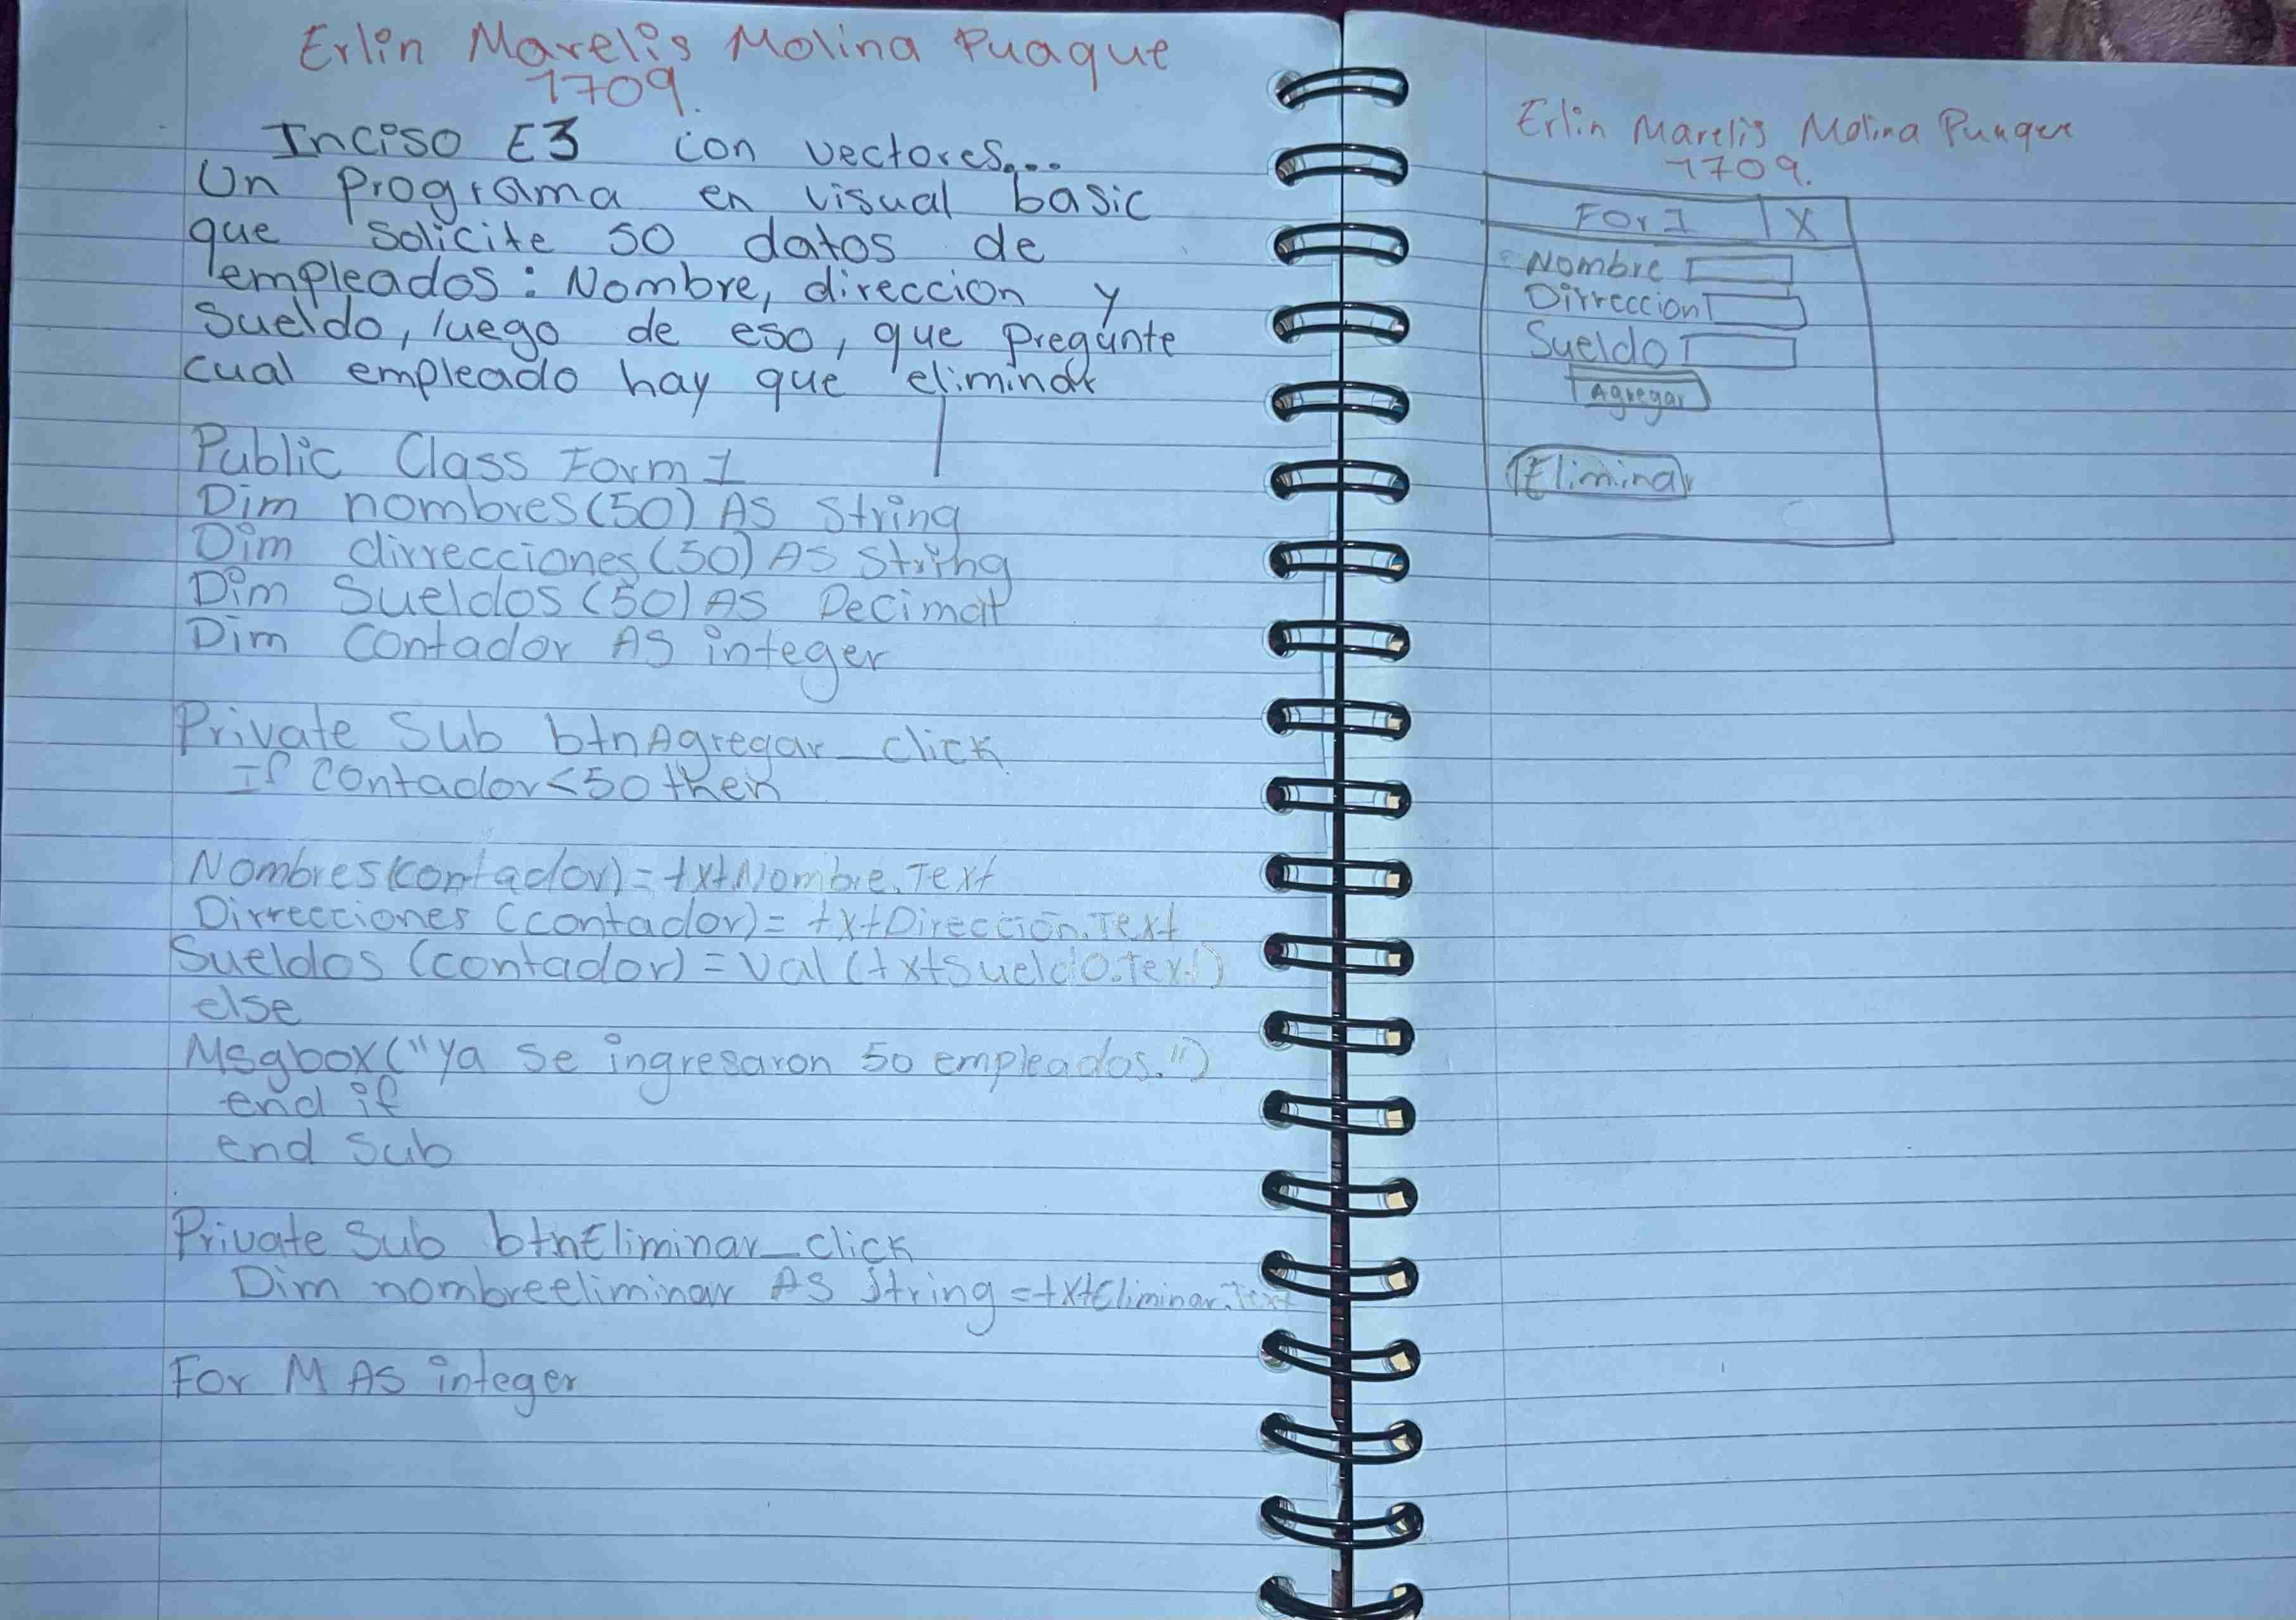 Erlin Marelis Molina Puaque
1709.
Inciso E3 con vectores...
Un programa en visual basic
que solicite 50 datos de
empleados: Nombre, direccion y
Sueldo, luego de eso, que pregunte
cual empleado hay que eliminar
Public Class Form 1
Dim nombres(50) As String
Dim dirrecciones(50) As String
Dim Sueldos (50) As Decimal
Dim Contador As integer
Private Sub btnAgregar_click
If Contador<50 then
Nombres(contador)= txtNombre.Text
Dirrecciones (contador)= txtDirección.Text
Sueldos (contador) = Val (txtSueldo.Text)
else
Msgbox("Ya se ingresaron 50 empleados.")
end if
end sub
Private Sub btnEliminar_click
Dim nombreeliminar As String =txtEliminar.Text
For M As integer
Erlin Marelis Molina Puaque
1709.
For 1 X
Nombre
Dirreccion
Sueldo
Agregar
Eliminar